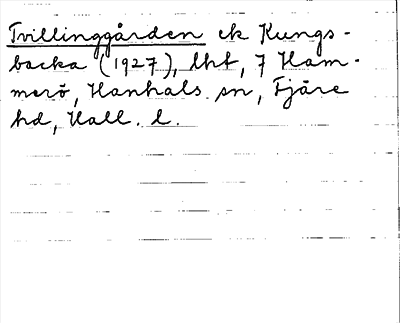 Tvillinggården ek Kungs-
backa (1927), lht, 7 Ham-
merö, Hanhals sn, Fjäre
hd, Hall. l.